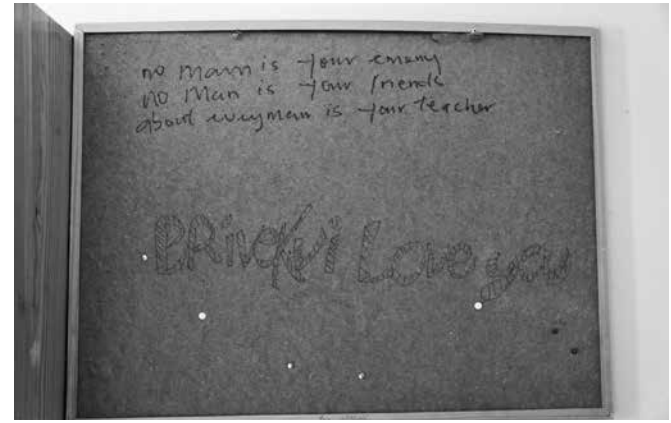 no man is your enemy
no Man is your friends
about everyman is your teacher
i Love you